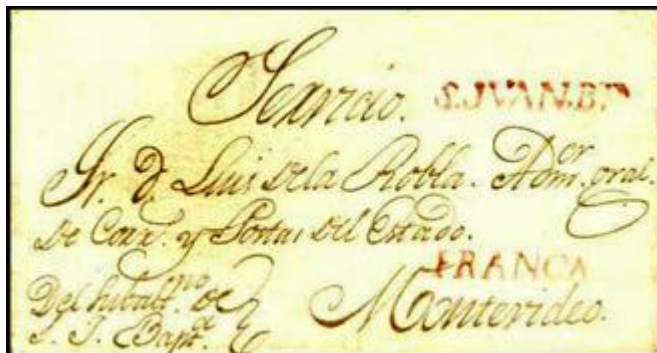 Servicio. S.JVAN.Bᵗᵃ
Sr. D. Luis de la Robla. Admᵒʳ. gral.
de Corr.ˢ y Postas del Estado.
FRANCA
Del Subalt.ⁿᵒ de Montevideo.
S. J. Bapt.ᵃ